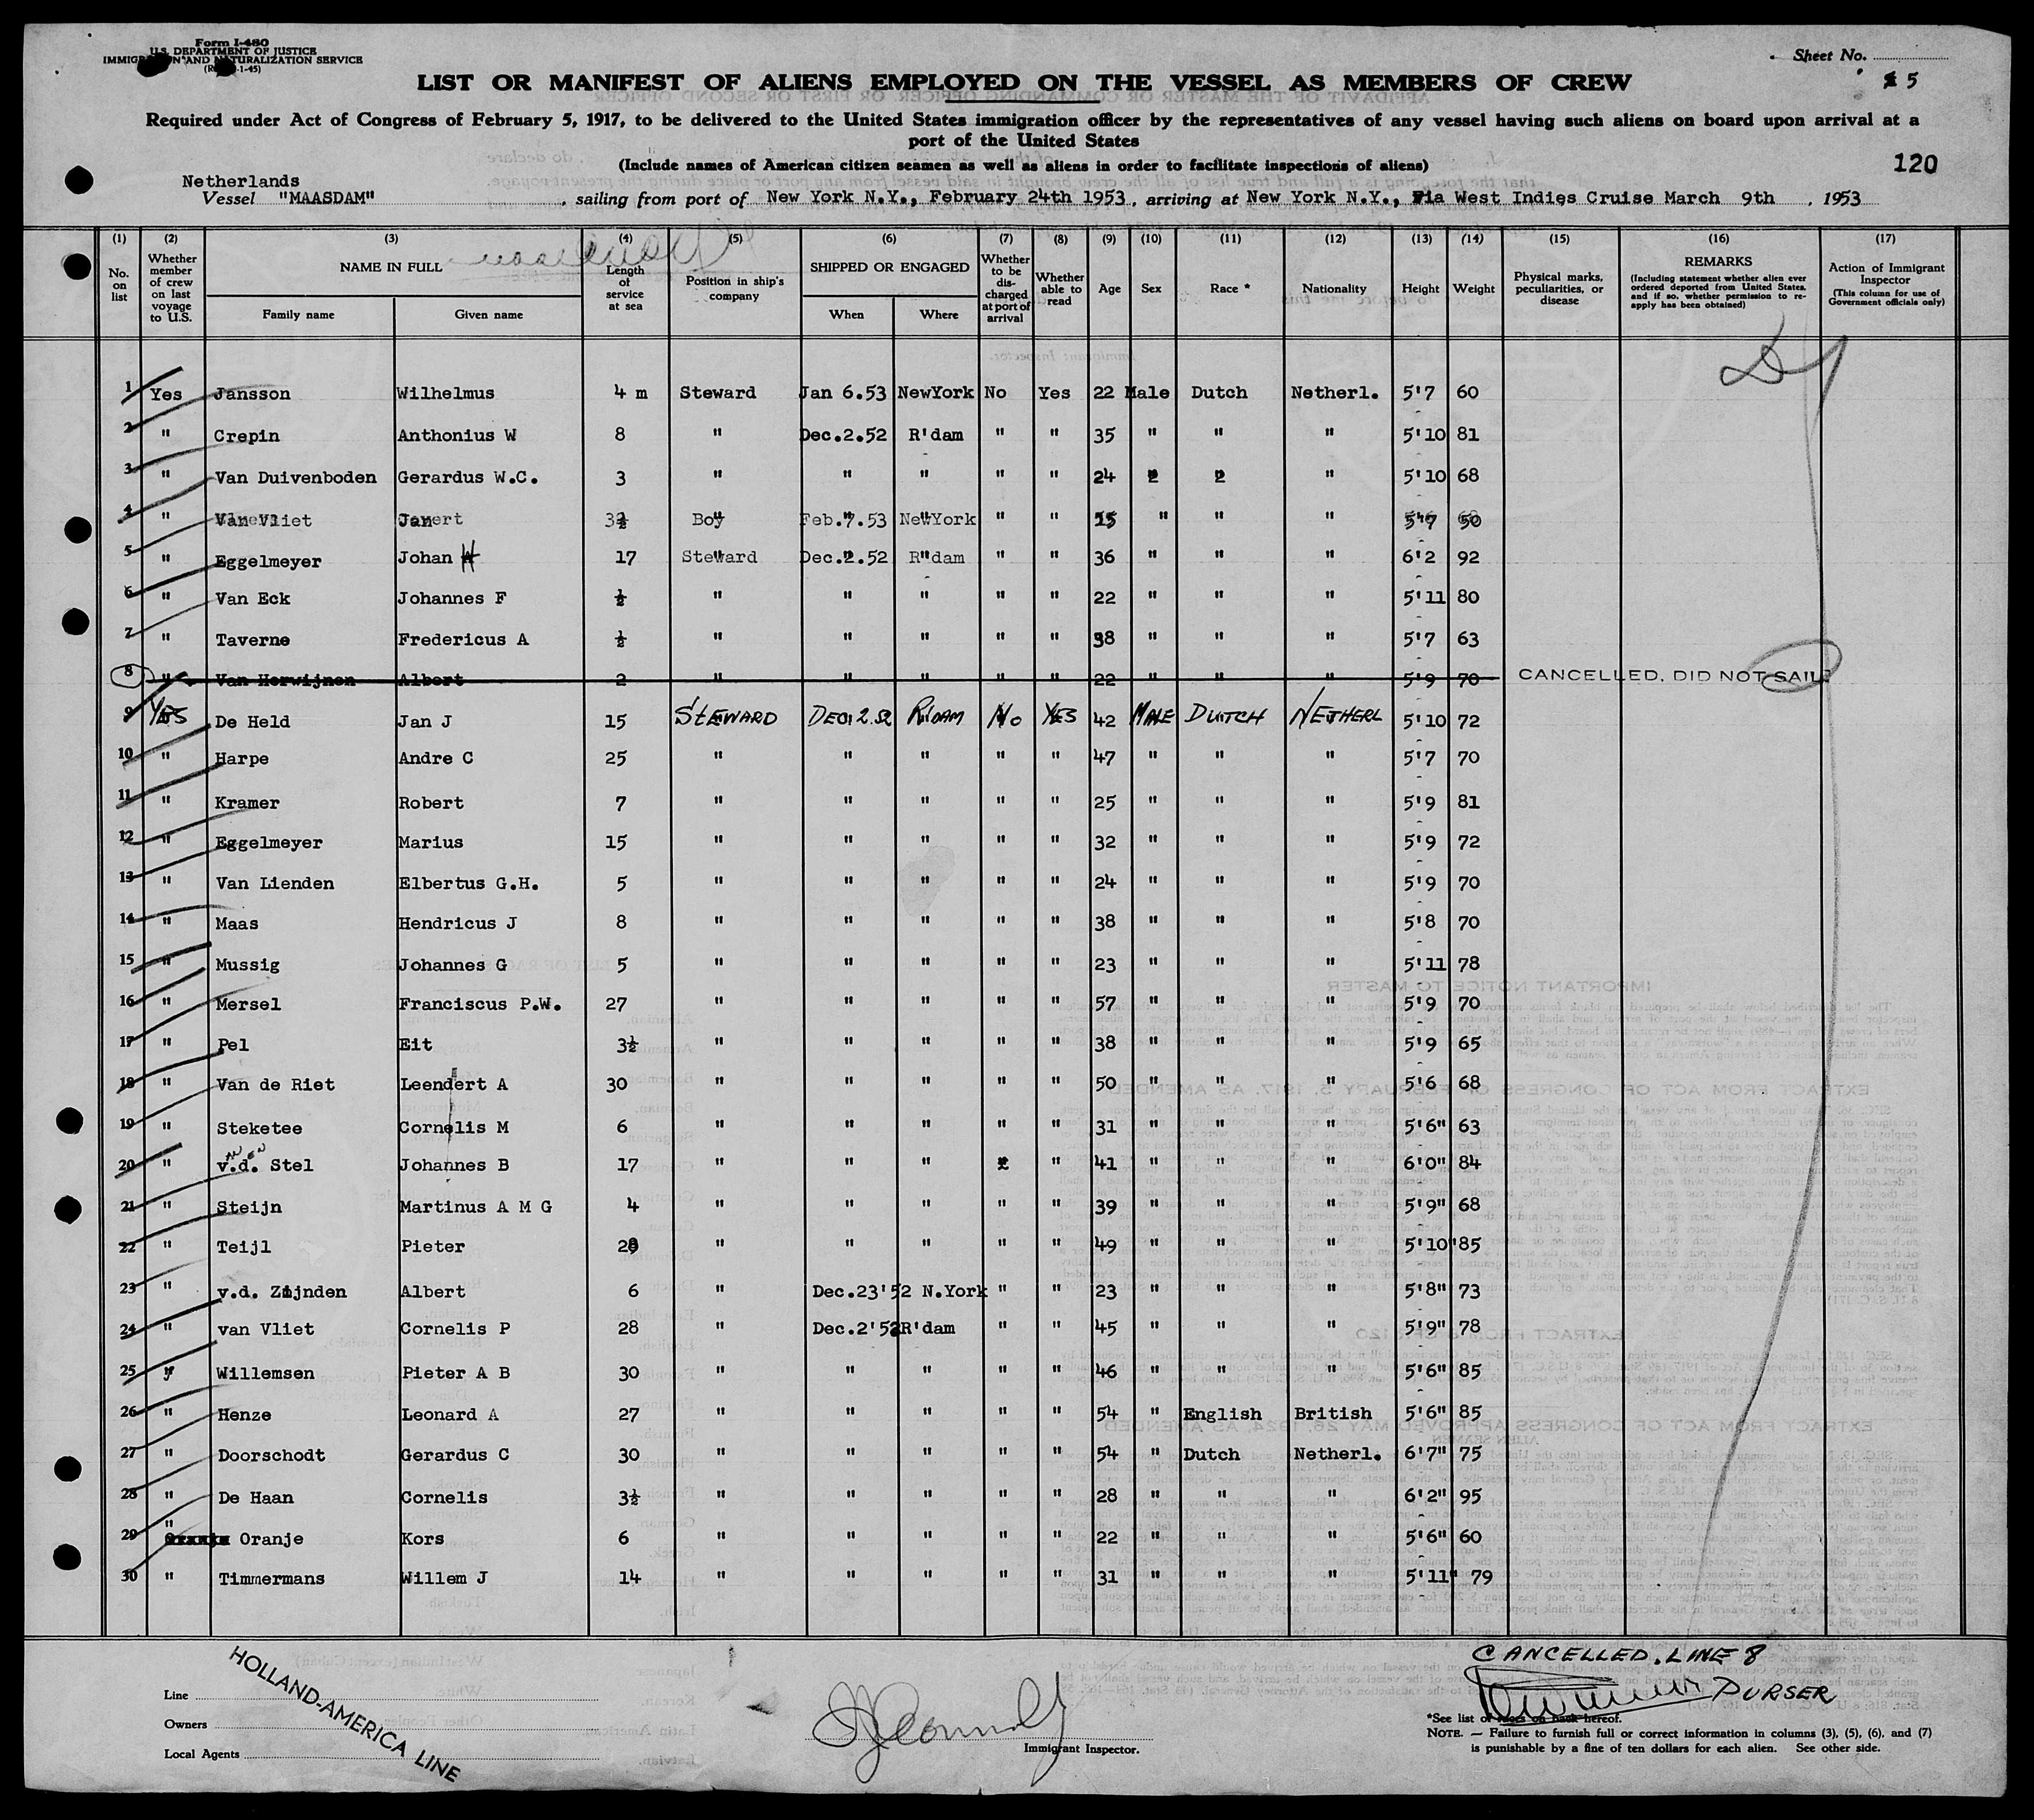 Form I-480
U.S. DEPARTMENT OF JUSTICE
IMMIGRATION AND NATURALIZATION SERVICE
Sheet No.
5
LIST OR MANIFEST OF ALIENS EMPLOYED ON THE VESSEL AS MEMBERS OF CREW
Required under Act of Congress of February 5, 1917, to be delivered to the United States immigration officer by the representatives of any vessel having such aliens on board upon arrival at a
port of the United States
(Include names of American citizen seamen as well as aliens in order to facilitate inspections of aliens)
120
Netherlands
Vessel "MAASDAM", sailing from port of New York N.Y., February 24th 1953, arriving at New York N.Y., Via West Indies Cruise March 9th, 1953
(1) (2) (3) (4) (5) (6) (7) (8) (9) (10) (11) (12) (13) (14) (15) (16) (17)
No. on list
Whether member of crew on last voyage to U.S.
NAME IN FULL
Family name
Given name
Length of service at sea
Position in ship's company
SHIPPED OR ENGAGED
When
Where
Whether to be discharged at port of arrival
Whether able to read
Age
Sex
Race *
Nationality
Height
Weight
Physical marks, peculiarities, or disease
REMARKS
(Including statement whether alien ever ordered deported from United States, and if so, whether permission to re-apply has been obtained)
Action of Immigrant Inspector
(This column for use of Government officials only)
1 Yes Jansson Wilhelmus 4 m Steward Jan 6.53 NewYork No Yes 22 Male Dutch Netherl. 5'7 60
2 " Crepin Anthonius W 8 " Dec.2.52 R'dam " " 35 " " " 5'10 81
3 " Van Duivenboden Gerardus W.C. 3 " " " " " 24 " " " 5'10 68
4 " Van Vliet Jan Boy Feb.7.53 NewYork " " 15 " " " 5'7 50
5 " Eggelmeyer Johan H 17 Steward Dec.2.52 R'dam " " 36 " " " 6'2 92
6 " Van Eck Johannes F ½ " " " " " 22 " " " 5'11 80
7 " Taverne Fredericus A ½ " " " " " 38 " " " 5'7 63
8 " Van Herwijnen Albert 2 " " " " " 22 " " " 5'9 70 CANCELLED, DID NOT SAIL
9 YES De Held Jan J 15 STEWARD DEC. 2.52 R'DAM No YES 42 MALE DUTCH NETHERL 5'10 72
10 " Harpe Andre C 25 " " " " " 47 " " " 5'7 70
11 " Kramer Robert 7 " " " " " 25 " " " 5'9 81
12 " Eggelmeyer Marius 15 " " " " " 32 " " " 5'9 72
13 " Van Lienden Elbertus G.H. 5 " " " " " 24 " " " 5'9 70
14 " Maas Hendricus J 8 " " " " " 38 " " " 5'8 70
15 " Mussig Johannes G 5 " " " " " 23 " " " 5'11 78
16 " Mersel Franciscus P.W. 27 " " " " " 57 " " " 5'9 70
17 " Pel Eit 3½ " " " " " 38 " " " 5'9 65
18 " Van de Riet Leendert A 30 " " " " " 50 " " " 5'6 68
19 " Steketee Cornelis M 6 " " " " " 31 " " " 5'6" 63
20 " v.d. Stel Johannes B 17 " " " " " 41 " " " 6'0" 84
21 " Steijn Martinus A M G 4 " " " " " 39 " " " 5'9" 68
22 " Teijl Pieter 28 " " " " " 49 " " " 5'10" 85
23 " v.d. Zijnden Albert 6 " Dec.23'52 N.York " " 23 " " " 5'8" 73
24 " van Vliet Cornelis P 28 " Dec.2'52 R'dam " " 45 " " " 5'9" 78
25 " Willemsen Pieter A B 30 " " " " " 46 " " " 5'6" 85
26 " Henze Leonard A 27 " " " " " 54 " English British 5'6" 85
27 " Doorschodt Gerardus C 30 " " " " " 54 " Dutch Netherl. 6'7" 75
28 " De Haan Cornelis 3½ " " " " " 28 " " " 6'2" 95
29 " Oranje Kors 6 " " " " " 22 " " " 5'6" 60
30 " Timmermans Willem J 14 " " " " " 31 " " " 5'11" 79
CANCELLED. LINE 8
PURSER
Line
Owners
Local Agents
HOLLAND-AMERICA LINE
Immigrant Inspector.
*See list of races on back hereof.
NOTE. — Failure to furnish full or correct information in columns (3), (5), (6), and (7)
is punishable by a fine of ten dollars for each alien. See other side.